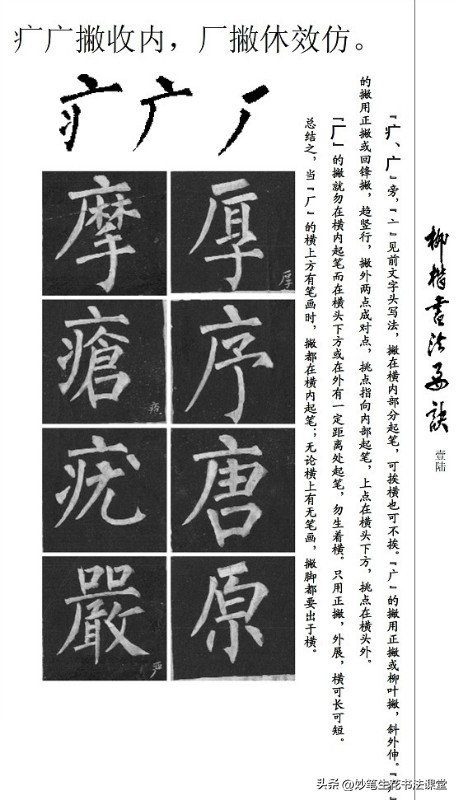 疒广撇收内，厂撇休效仿。
疒广厂
柳楷书法要诀
壹陆
『疒、广』旁，『亠』见前文字头写法，撇在横内部分起笔，可挨横也可不挨。『广』的撇用正撇或柳叶撇，斜外伸。『疒』
的撇用正撇或回锋撇，趋竖行，撇外两点成对点，挑点指向内部起笔，上点在横头下方，挑点在横头外。
『厂』的撇就勿在横内起笔而在横头下方或在外有一定距离处起笔，勿生着横。只用正撇，外展，横可长可短。
总结之，当『厂』的横上方有笔画时，撇都在横内起笔；无论横上有无笔画，撇脚都要出于横。
厚
摩
厚
序
瘡
唐
疣
原
嚴
严
头条 @妙笔生花书法课堂